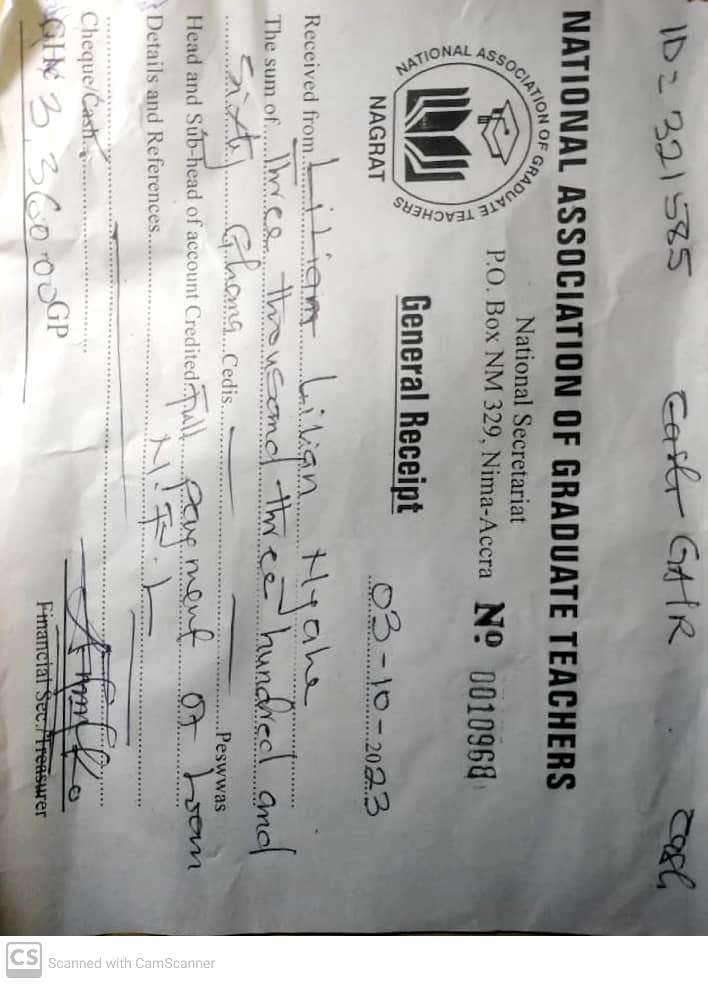 ID = 321585 Cash GAIR cash
NATIONAL ASSOCIATION OF GRADUATE TEACHERS
National Secretariat
P.O. Box NM 329, Nima-Accra Nº 0010968
NATIONAL ASSOCIATION OF GRADUATE TEACHERS
NAGRAT
General Receipt
03-10-2023
Received from Lilian
The sum of Three thousand three hundred and
Sixty Ghana Cedis Peswwas
Head and Sub-head of account Credited Full payment of Loan
Details and References
Cheque/Cash
GH¢ 3,360.00 GP
Financial Sec./Treasurer
CS Scanned with CamScanner